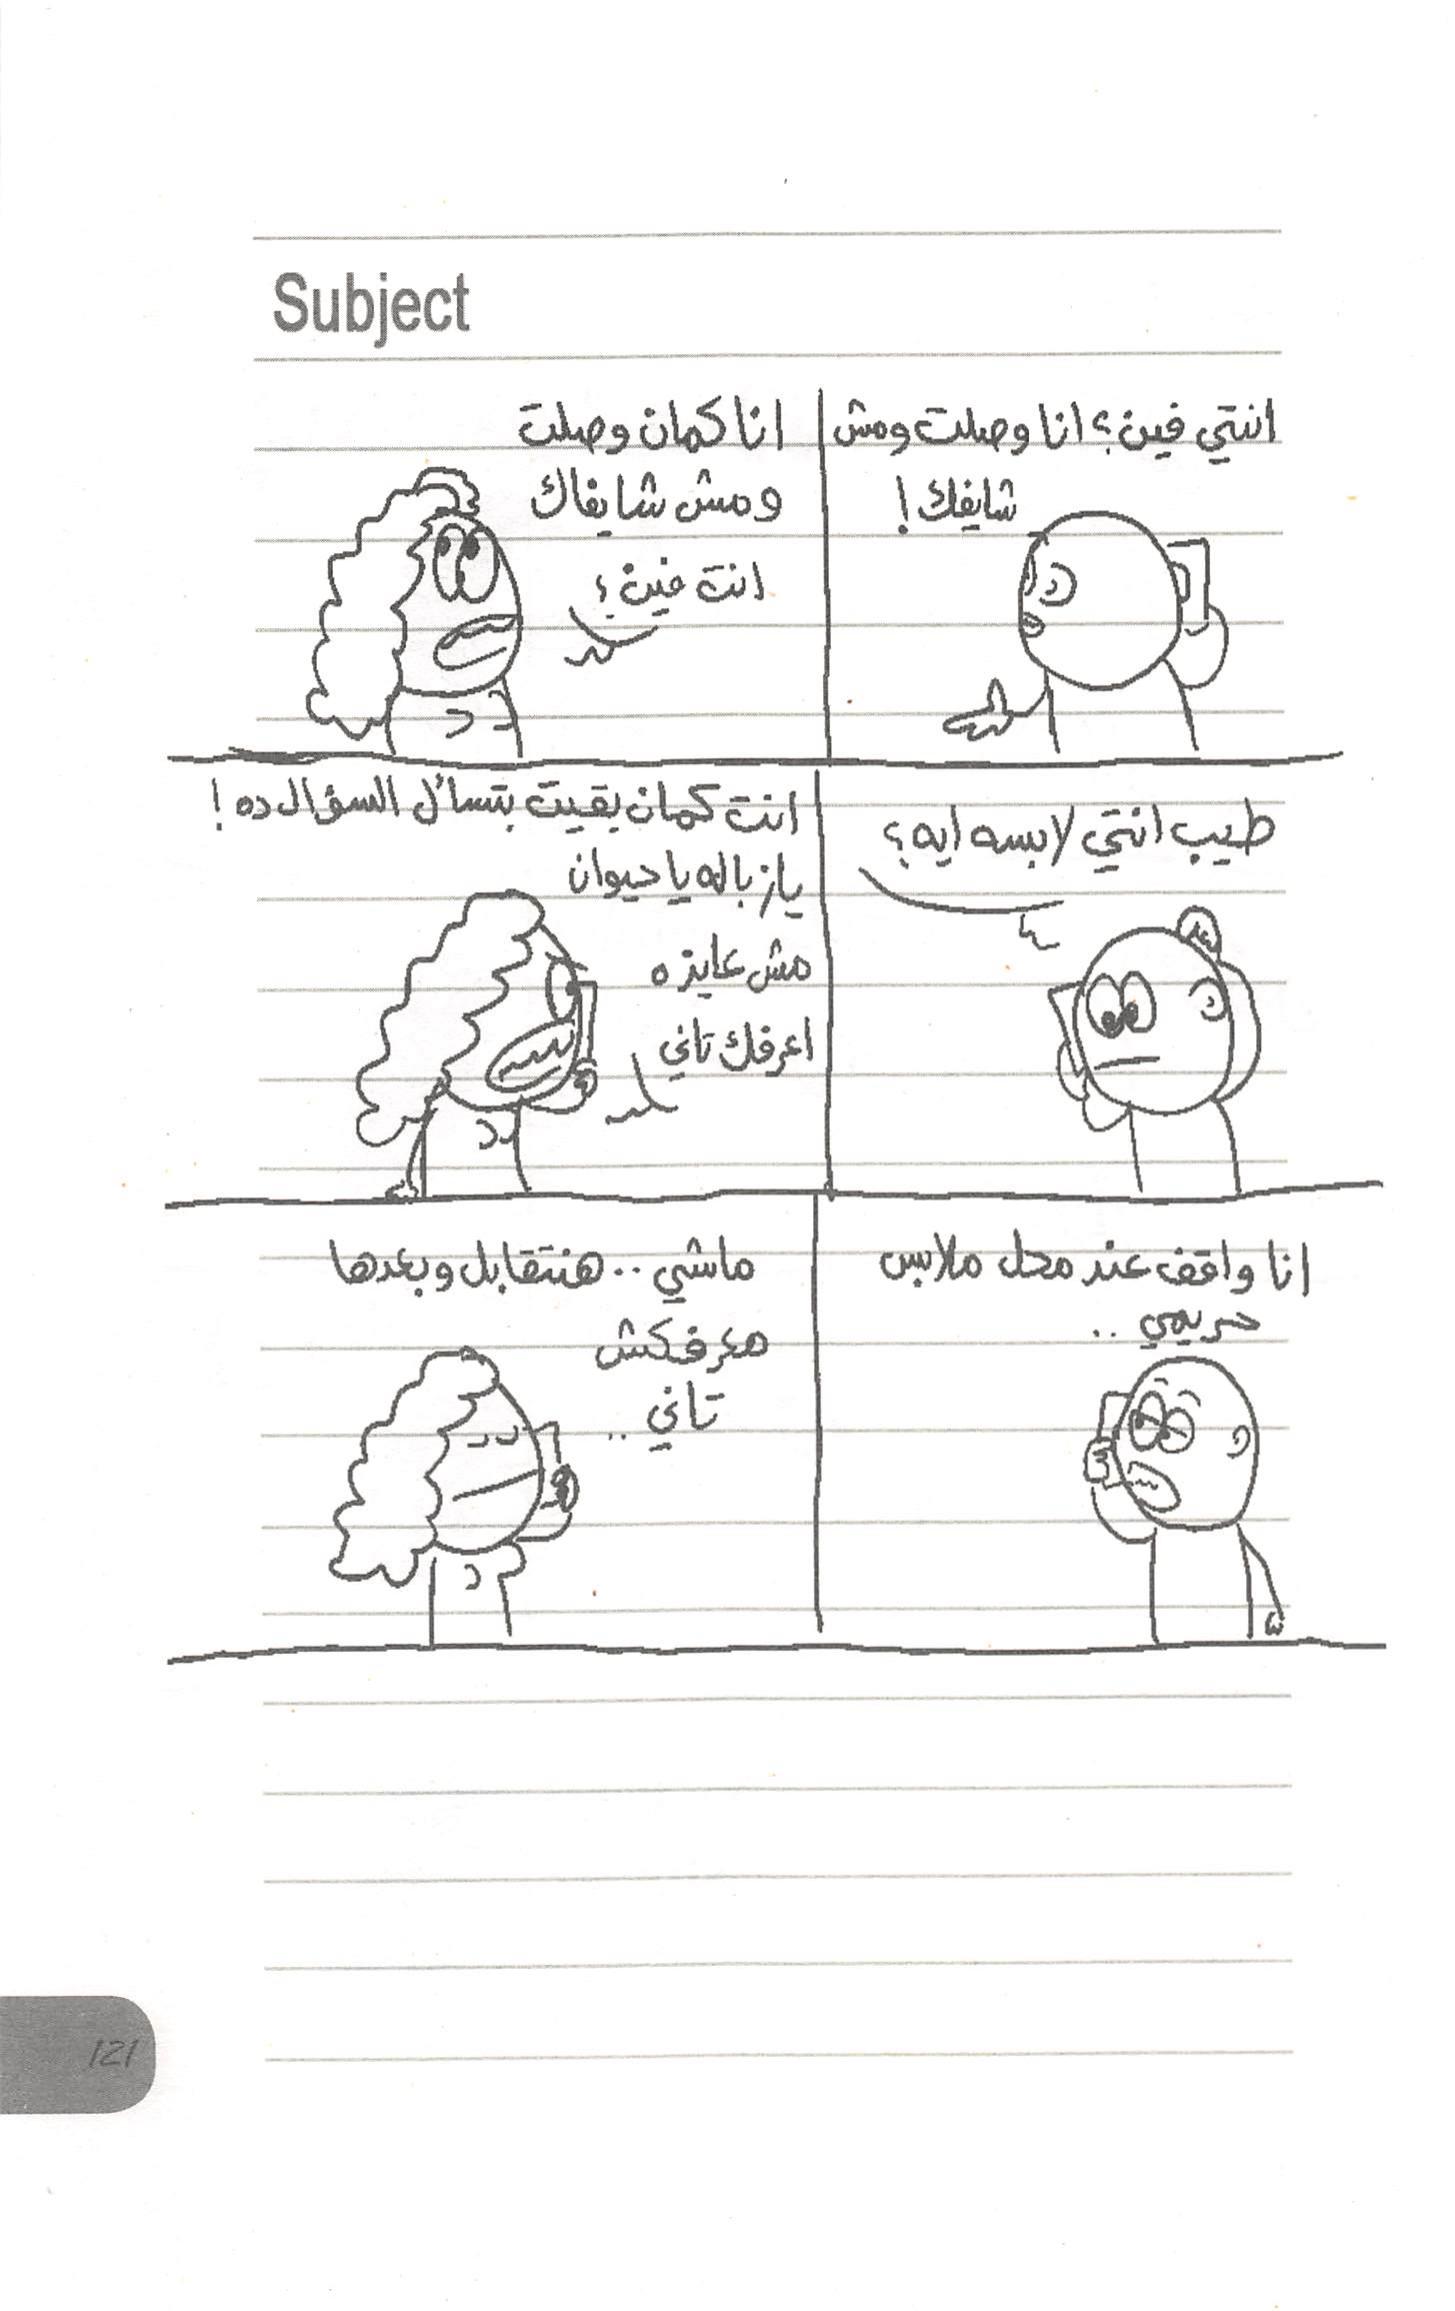 Subject
انتي فين؟ انا وصلت ومش
شايفك!
انا كمان وصلت
ومش شايفاك
انت فين؟
طيب انتي لابسه ايه؟
انت كمان بقيت بتسأل السؤال ده!
يازباله يا حيوان
مش عايزه
اعرفك تاني
انا واقف عند محل ملابس
حريمي..
ماشي.. هنتقابل وبعدها
معرفكش
تاني..
121